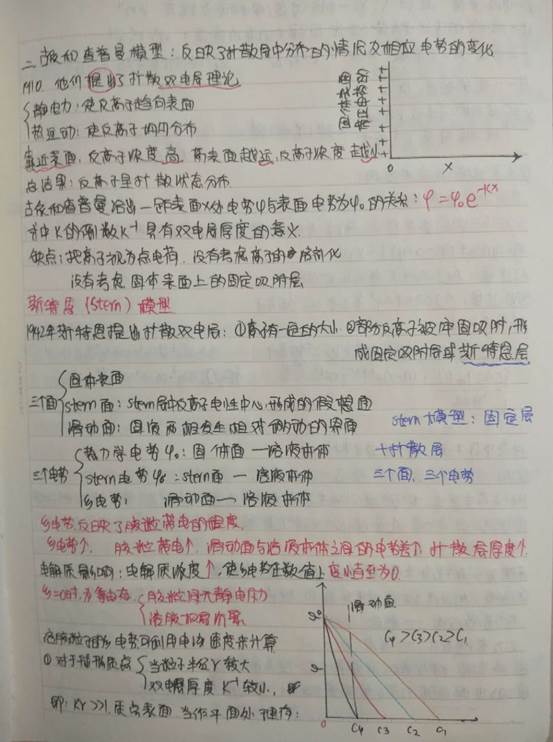 二、古依和查普曼模型：反映了扩散层中分布的情况及相应电势的变化
1910. 他们提出了扩散双电层理论
静电力：使反离子趋向表面
热运动：使反离子均匀分布
靠近表面，反离子浓度高，离表面越远，反离子浓度越小
总结果：反离子呈扩散状态分布
固体表面
+ + + + + + +
0 X
古依和查普曼得出一距表面x处电势φ与表面电势为φ₀的关系：φ=φ₀e^-κx
式中K的倒数K⁻¹具有双电层厚度的意义
缺点：把离子视为点电荷，没有考虑离子的溶剂化
没有考虑固体表面上的固定吸附层
斯特恩 (Stern) 模型
年斯特恩提出扩散双电层：①离子有一定的大小 ②部分反离子被牢固吸附，形
成固定吸附层或斯特恩层
三个面
固体表面
stern面：stern层中反离子电性中心形成的假想面
滑动面：固液两相发生相对移动的界面
stern模型：固定层
+扩散层
三个面、三个电势
三个电势
热力学电势φ₀：固体面—溶液本体
stern电势φδ：stern面—溶液本体
ζ电势：滑动面—溶液本体
ζ电势反映了胶粒带电的程度
ζ电势↑，胶粒带电↑，滑动面与溶液本体之间的电势差↑ 扩散层厚度↑
电解质影响：电解质浓度↑，使ζ电势在数值上变小直至为0
ζ=0时，为等电态
胶粒间无静电斥力
溶胶极易聚沉
溶胶粒子的ζ电势可利用电泳速度来计算
① 对于棒形质点
当粒子半径r较大
双电层厚度 K⁻¹较小，即
即：Kr>>1，质点表面当作平面处理
φ₀
滑动面
C₄>C₃>C₂>C₁
0
C₄ C₃ C₂ C₁